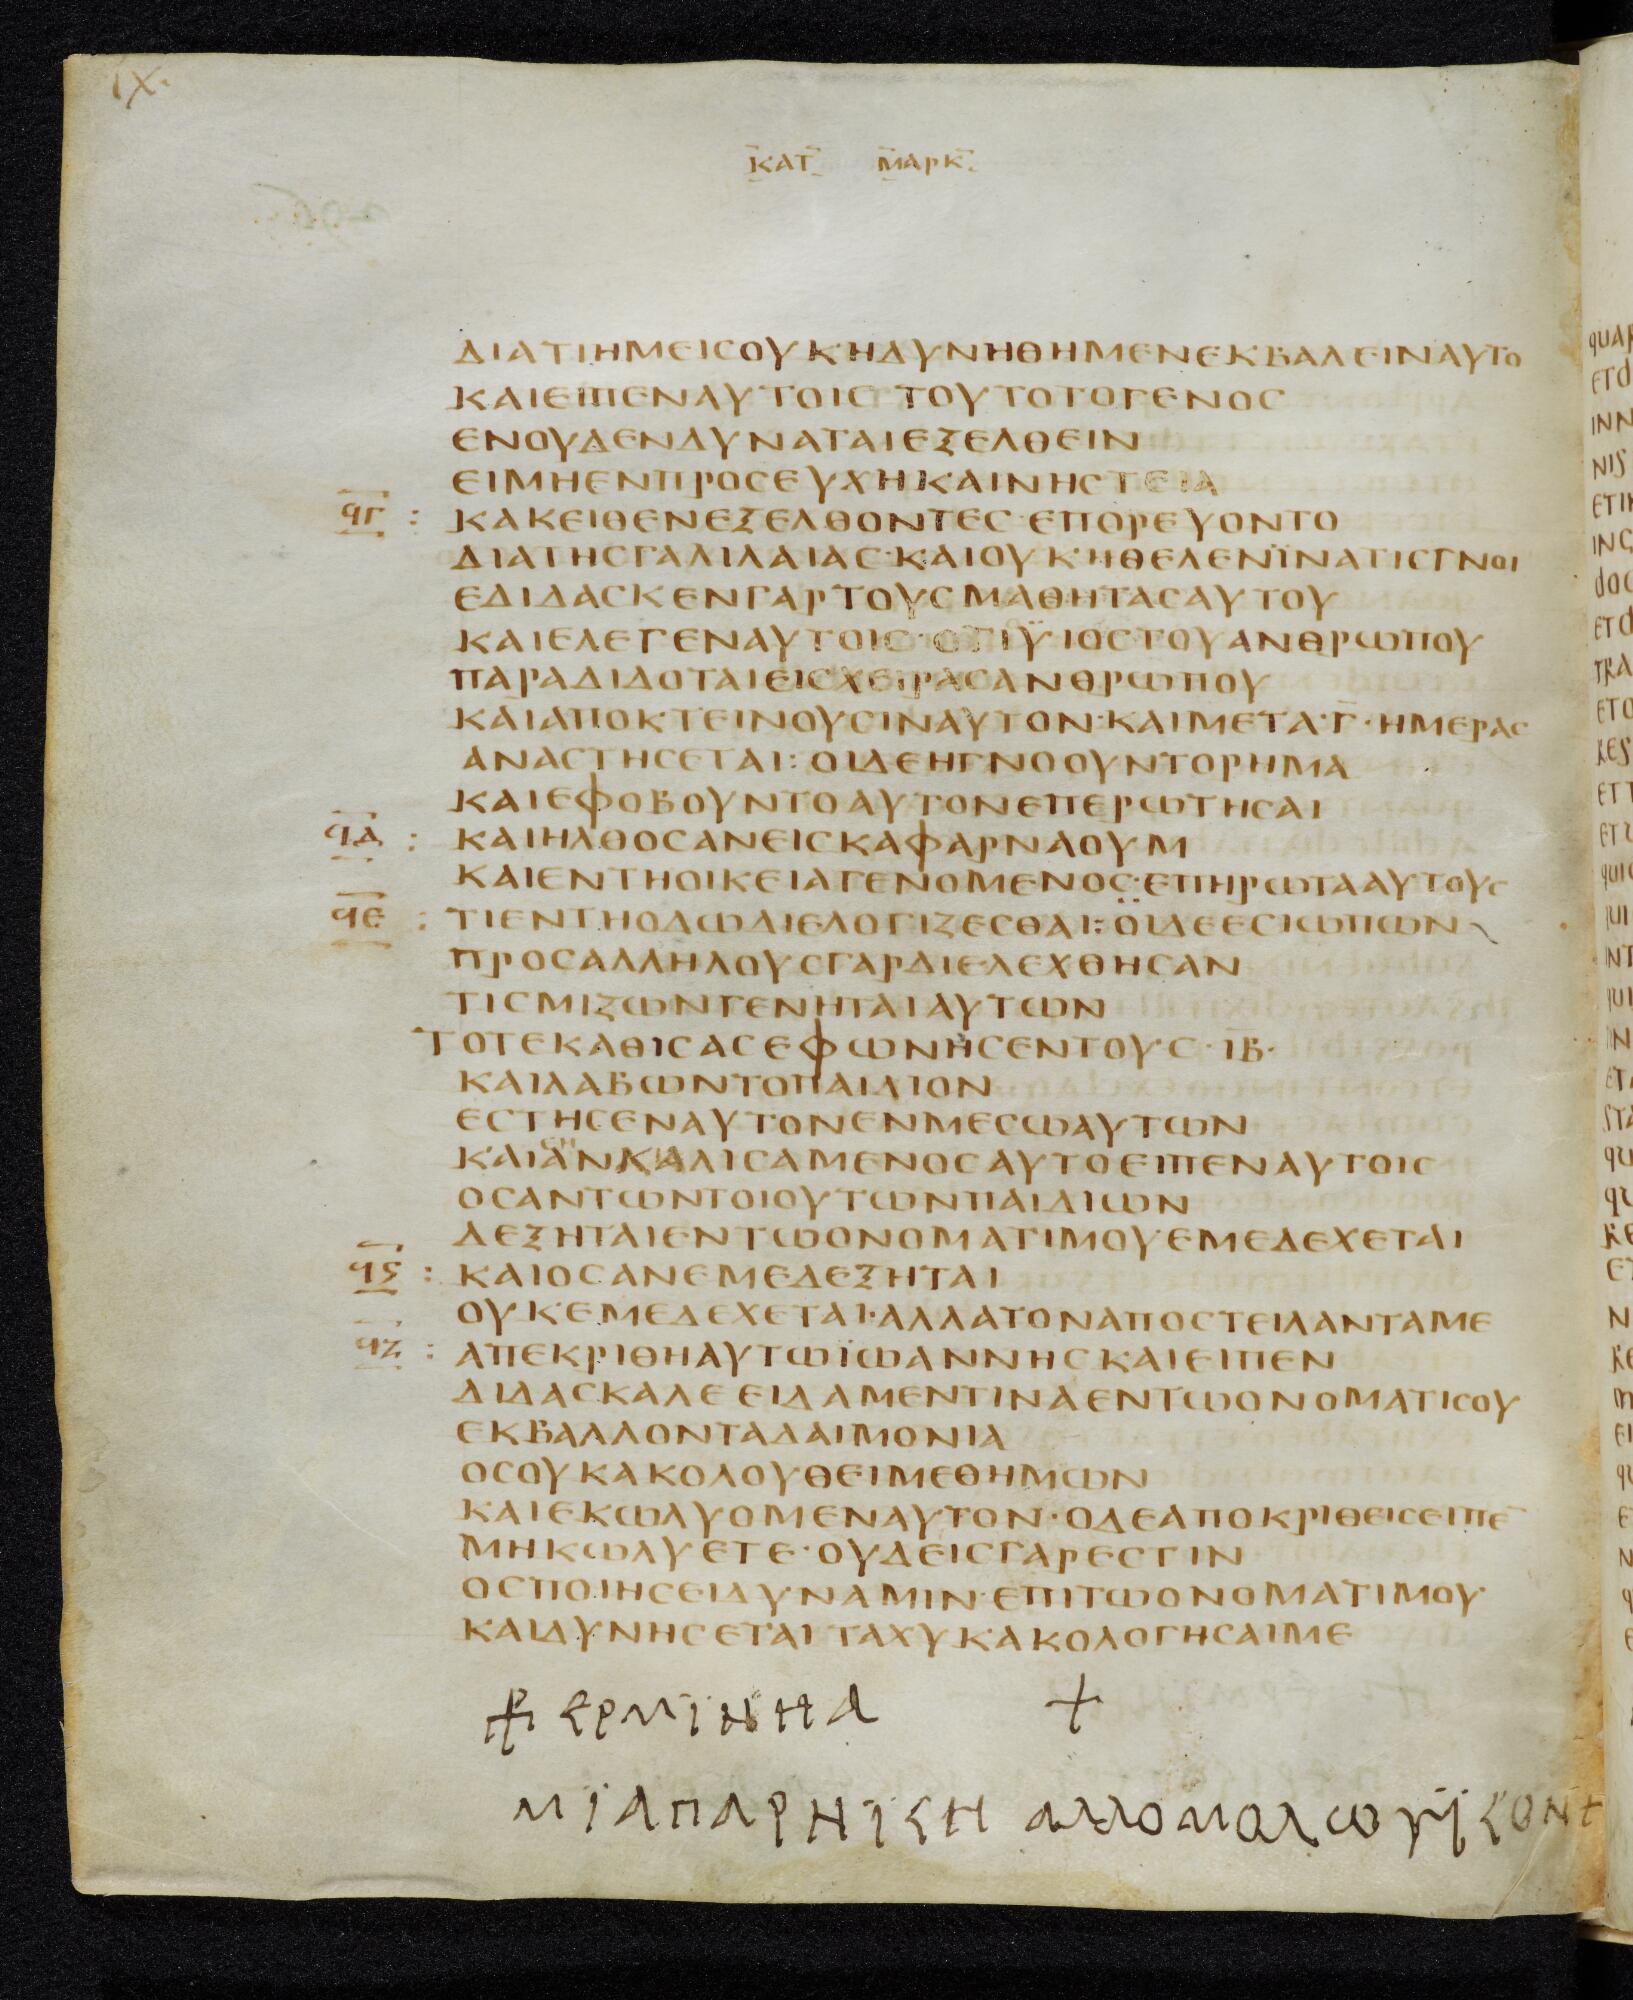 ΙΧ.
ΚΑΤ ΜΑΡΚ
ΔΙΑΤΙΗΜΕΙCΟΥΚΗΔΥΝΗΘΗΜΕΝΕΚΒΑΛΕΙΝΑΥΤΟ
ΚΑΙΕΙΠΕΝΑΥΤΟΙC ΤΟΥΤΟΤΟΓΕΝΟC
ΕΝΟΥΔΕΝΔΥΝΑΤΑΙΕΞΕΛΘΕΙΝ
ΕΙΜΗΕΝΠΡΟCΕΥΧΗΚΑΙΝΗCΤΕΙΑ
ϤΓ : ΚΑΚΕΙΘΕΝΕΞΕΛΘΟΝΤΕC·ΕΠΟΡΕΥΟΝΤΟ
ΔΙΑΤΗCΓΑΛΙΛΑΙΑC·ΚΑΙΟΥΚΗΘΕΛΕΝΪΝΑΤΙCΓΝΟΙ
ΕΔΙΔΑCΚΕΝΓΑΡΤΟΥCΜΑΘΗΤΑCΑΥΤΟΥ
ΚΑΙΕΛΕΓΕΝΑΥΤΟΙC·ΟΤΙΥΙΟCΤΟΥΑΝΘΡΩΠΟΥ
ΠΑΡΑΔΙΔΟΤΑΙΕΙCΧΕΙΡΑCΑΝΘΡΩΠΟΥ
ΚΑΙΑΠΟΚΤΕΙΝΟΥCΙΝΑΥΤΟΝ·ΚΑΙΜΕΤΑ·Γ̅·ΗΜΕΡΑC
ΑΝΑCΤΗCΕΤΑΙ:ΟΙΔΕΗΓΝΟΟΥΝΤΟΡΗΜΑ
ΚΑΙΕΦΟΒΟΥΝΤΟΑΥΤΟΝΕΠΕΡΩΤΗCΑΙ
ϤΔ : ΚΑΙΗΛΘΟCΑΝΕΙCΚΑΦΑΡΝΑΟΥΜ
ΚΑΙΕΝΤΗΟΙΚΕΙΑΓΕΝΟΜΕΝΟC·ΕΠΗΡΩΤΑΑΥΤΟΥC
ϤΕ : ΤΙΕΝΤΗΟΔΩΔΙΕΛΟΓΙΖΕCΘΑΙ:ΟΙΔΕΕCΙΩΠΩΝ
ΠΡΟCΑΛΛΗΛΟΥCΓΑΡΔΙΕΛΕΧΘΗCΑΝ
ΤΙCΜΙΖΩΝΓΕΝΗΤΑΙΑΥΤΩΝ
ΤΟΤΕΚΑΘΙCΑCΕΦΩΝΗCΕΝΤΟΥC·ΙΒ̅·
ΚΑΙΛΑΒΩΝΤΟΠΑΙΔΙΟΝ
ΕCΤΗCΕΝΑΥΤΟΝΕΝΜΕCΩΑΥΤΩΝ
ΚΑΙΑΝΚΑΛΙCΑΜΕΝΟCΑΥΤΟΕΙΠΕΝΑΥΤΟΙC
ΟCΑΝΤΩΝΤΟΙΟΥΤΩΝΠΑΙΔΙΩΝ
ΔΕΞΗΤΑΙΕΝΤΩΟΝΟΜΑΤΙΜΟΥΕΜΕΔΕΧΕΤΑΙ
ϤϚ : ΚΑΙΟCΑΝΕΜΕΔΕΞΗΤΑΙ
ΟΥΚΕΜΕΔΕΧΕΤΑΙ·ΑΛΛΑΤΟΝΑΠΟCΤΕΙΛΑΝΤΑΜΕ
ϤΖ : ΑΠΕΚΡΙΘΗΑΥΤΩΪΩΑΝΝΗCΚΑΙΕΙΠΕΝ
ΔΙΔΑCΚΑΛΕΕΙΔΑΜΕΝΤΙΝΑΕΝΤΩΟΝΟΜΑΤΙCΟΥ
ΕΚΒΑΛΛΟΝΤΑΔΑΙΜΟΝΙΑ
ΟCΟΥΚΑΚΟΛΟΥΘΕΙΜΕΘΗΜΩΝ
ΚΑΙΕΚΩΛΥΟΜΕΝΑΥΤΟΝ·ΟΔΕΑΠΟΚΡΙΘΕΙCΕΙΠΕ̅
ΜΗΚΩΛΥΕΤΕ·ΟΥΔΕΙCΓΑΡΕCΤΙΝ
ΟCΠΟΙΗCΕΙΔΥΝΑΜΙΝ·ΕΠΙΤΩΟΝΟΜΑΤΙΜΟΥ
ΚΑΙΔΥΝΗCΕΤΑΙΤΑΧΥΚΑΚΟΛΟΓΗCΑΙΜΕ
ΕΡΜΪΝΗΑ +